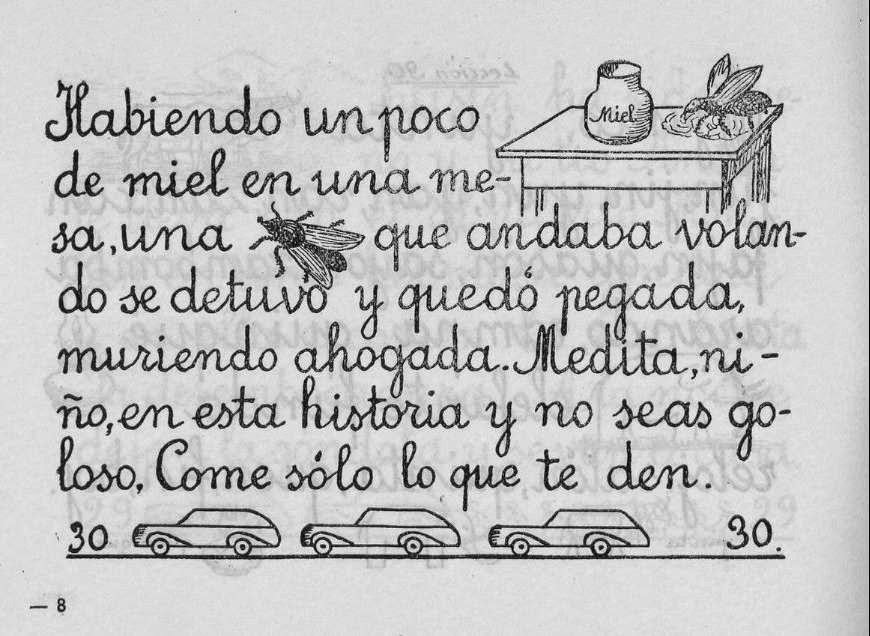 Miel
Habiendo un poco
de miel en una me-
sa, una que andaba volan-
do se detuvo y quedó pegada,
muriendo ahogada.. Medita, ni-
ño, en esta historia y no seas go-
loso, Come sólo lo que te den.
30 30.
— 8